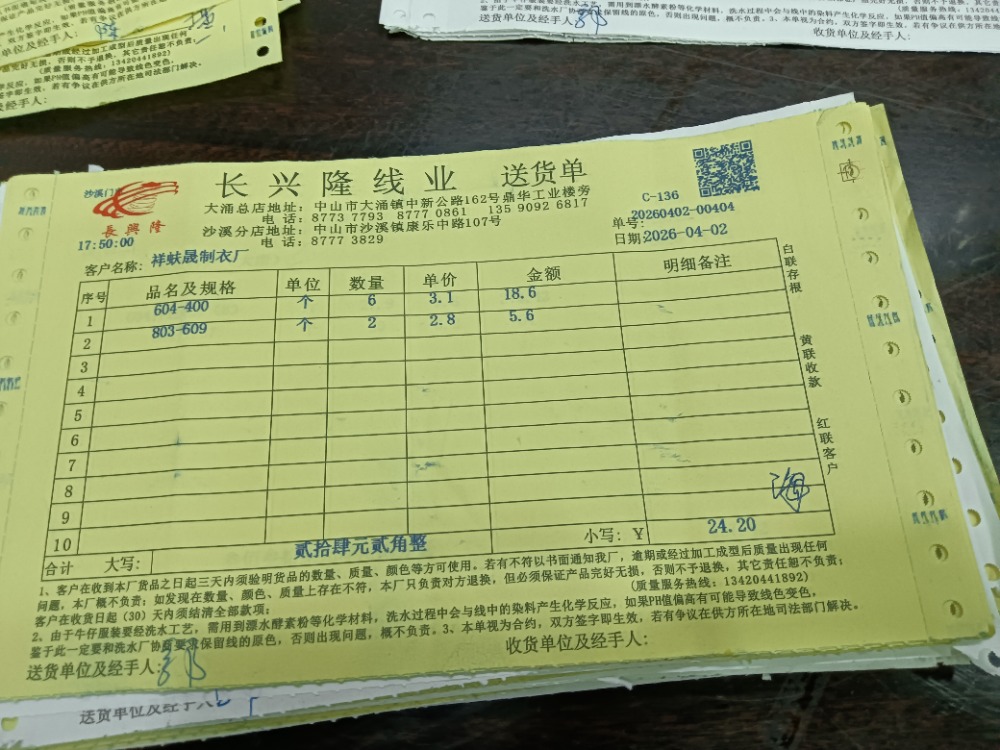 送货单位及经手人:
收货单位及经手人:
(质量服务热线: 13420441892)
沙溪门
長興隆
长兴隆线业 送货单
大涌总店地址: 中山市大涌镇中新公路162号鼎华工业楼旁
电话: 8773 7793 8777 0861 135 9092 6817
沙溪分店地址: 中山市沙溪镇康乐中路107号
电话: 8777 3829
C-136
单号: 20260402-00404
日期: 2026-04-02
17:50:00
客户名称: 祥蚨晟制衣厂
序号 品名及规格 单位 数量 单价 金额 明细备注
1 604-400 个 6 3.1 18.6
2 803-609 个 2 2.8 5.6
3
4
5
6
7
8
9
10
合计 大写: 贰拾肆元贰角整 小写: ¥ 24.20
白联存根
黄联收款
红联客户
1、客户在收到本厂货品之日起三天内须验明货品的数量、质量、颜色等方可使用。若有不符以书面通知我厂，逾期或经过加工成型后质量出现任何
问题，本厂概不负责；如发现在数量、颜色、质量上存在不符，本厂只负责对方退换，但必须保证产品完好无损，否则不予退换，其它责任恕不负责；
客户在收货日起（30）天内须结清全部款项； (质量服务热线: 13420441892)
2、由于牛仔服装要经洗水工艺，需用到漂水酵素粉等化学材料，洗水过程中会与线中的染料产生化学反应，如果PH值偏高有可能导致线色变色，
鉴于此一定要和洗水厂协商要求保留线的原色，否则出现问题，概不负责。3、本单视为合约，双方签字即生效，若有争议在供方所在地司法部门解决。
送货单位及经手人:
收货单位及经手人:
送货单位及经手人